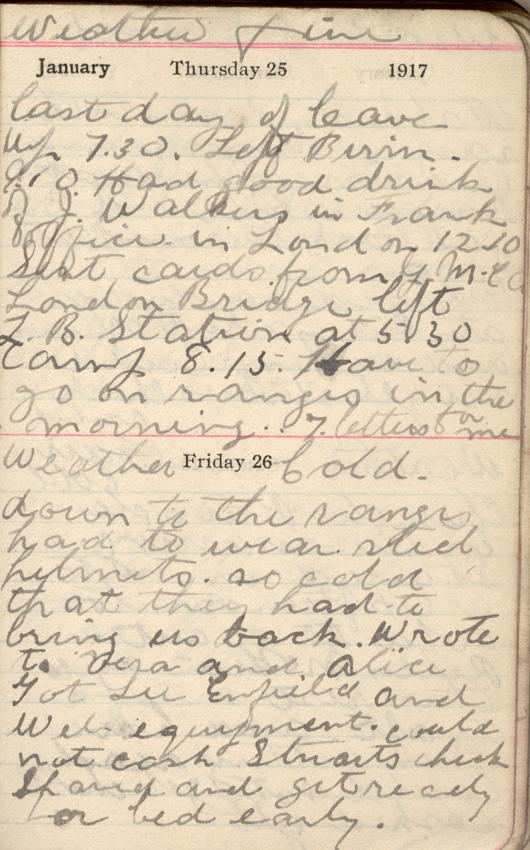 Weather Fine
January Thursday 25 1917
last day of leave
Up 7.30. Left Birm.
9.10. Had good drink
J. Walkers in Frank
in London 12.10
Sent cards from Y M.C.A
London Bridge left
L. B. Station at 5.30
Camp 8.15. Have to
go on ranges in the
morning. 7 letters for me
Weather Friday 26 Cold.
down to the ranges
had to wear steel
helmets. so cold
that they had to
bring us back. Wrote
to Vera and Alice
Got Lee Enfield and
Web equipment. could
not cash Stuarts check
Shave and get ready
for bed early.